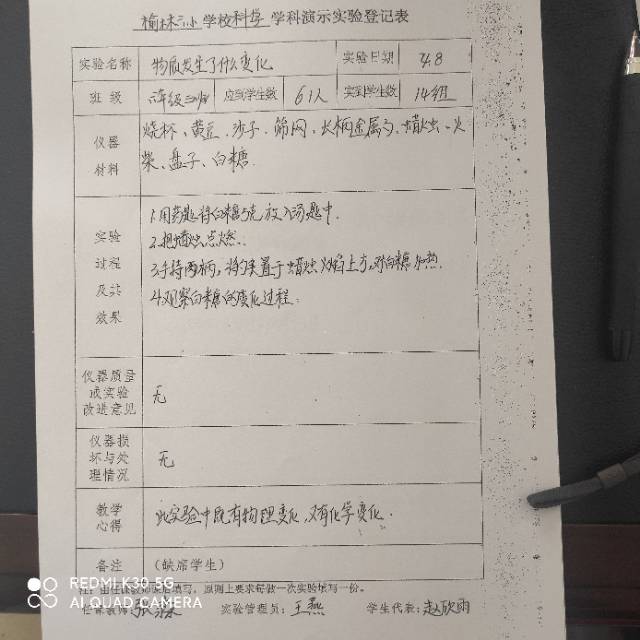 榆林三小学校科学学科演示实验登记表
实验名称 物质发生了什么变化 实验日期 4.8
班 级 六年级三班 应到学生数 61人 实到学生数 14组
仪器材料 烧杯、黄豆、沙子、筛网、长柄金属勺、蜡烛、火
柴、盘子、白糖.
实验过程及其效果 1.用药匙将白糖5克放入汤匙中.
2.把蜡烛点燃.
3.手持两柄,将勺来置于蜡烛火焰上方,对白糖加热.
4.观察白糖的变化过程.
仪器质量或实验改进意见 无
仪器损坏与处理情况 无
教学心得 此实验中既有物理变化,又有化学变化.
备注 (缺席学生)
注:由任课教师课后填写,原则上要求每做一次实验填写一份。
任课教师: 实验管理员:王燕 学生代表:赵欣雨
REDMI K30 5G
AI QUAD CAMERA